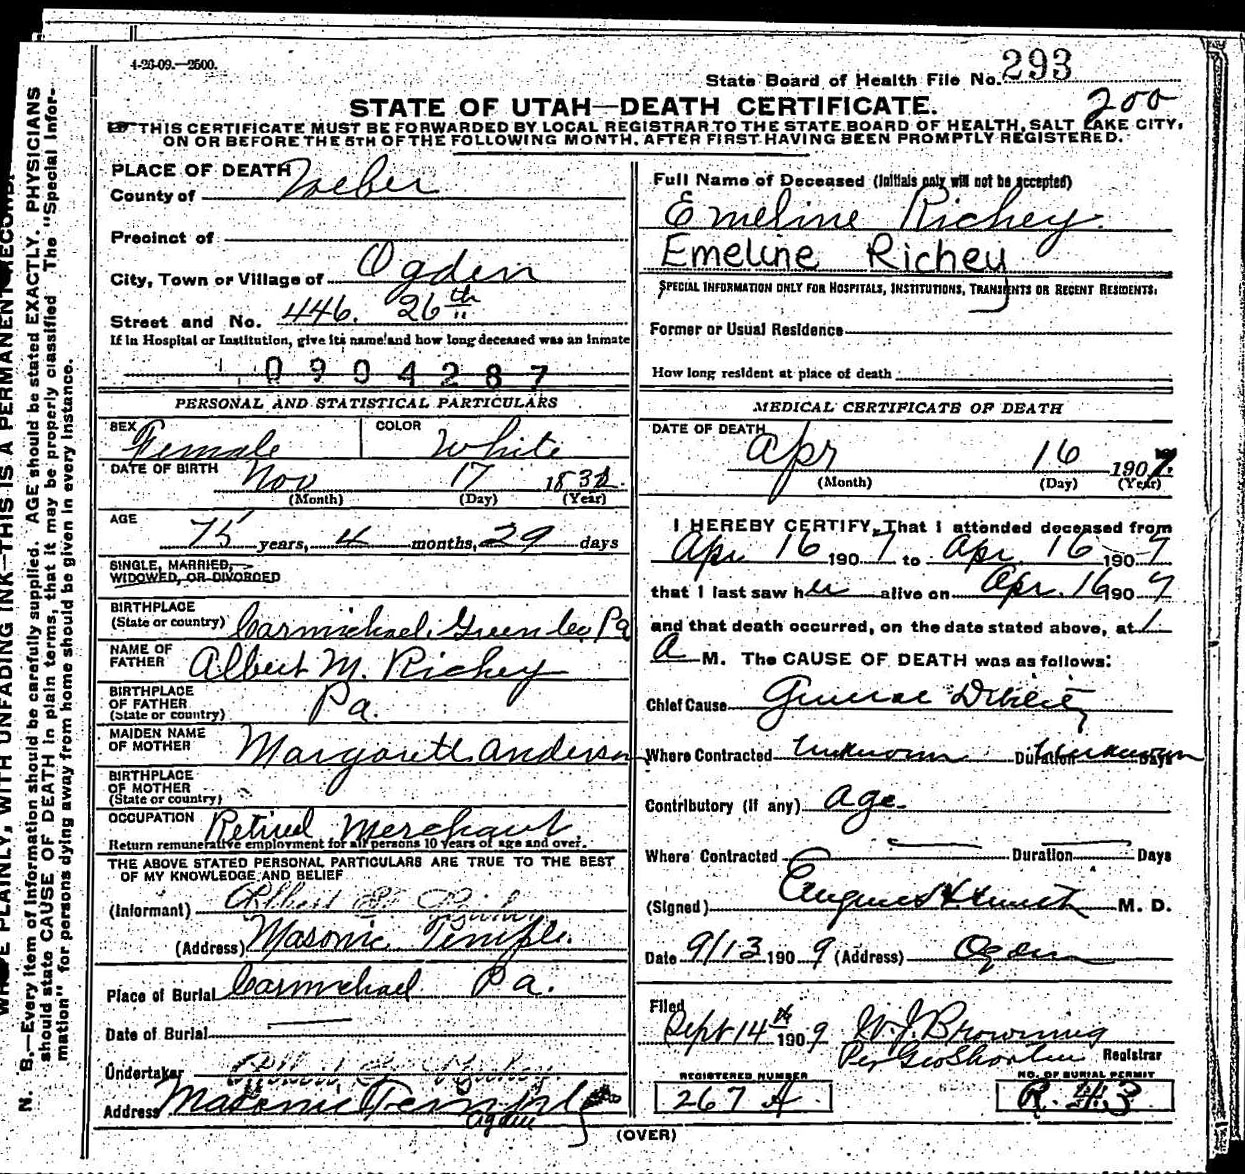 4-26-09.—2500.
State Board of Health File No. 293
200
STATE OF UTAH—DEATH CERTIFICATE.
THIS CERTIFICATE MUST BE FORWARDED BY LOCAL REGISTRAR TO THE STATE BOARD OF HEALTH, SALT LAKE CITY,
ON OR BEFORE THE 5TH OF THE FOLLOWING MONTH, AFTER FIRST HAVING BEEN PROMPTLY REGISTERED.
PLACE OF DEATH
County of Weber
Precinct of
City, Town or Village of Ogden
Street and No. 446. 26th
If in Hospital or Institution, give its name and how long deceased was an inmate
0904287
PERSONAL AND STATISTICAL PARTICULARS
SEX Female COLOR White
DATE OF BIRTH Nov 17 183
(Month) (Day) (Year)
AGE
75 years, 4 months, 29 days
SINGLE, MARRIED,
WIDOWED, OR DIVORCED
BIRTHPLACE
(State or country) Carmichael, Green Pa
NAME OF
FATHER Albert M. Richey
BIRTHPLACE
OF FATHER
(State or country) Pa.
MAIDEN NAME
OF MOTHER Margarett Anderson
BIRTHPLACE
OF MOTHER
(State or country)
OCCUPATION Retired Merchant
Return remunerative employment for all persons 10 years of age and over.
THE ABOVE STATED PERSONAL PARTICULARS ARE TRUE TO THE BEST
OF MY KNOWLEDGE AND BELIEF
(Informant) Albert
(Address) Masonic Temple.
Place of Burial Carmichael Pa.
Date of Burial
Undertaker
Address Masonic Temple
Ogden
Full Name of Deceased (Initials only will not be accepted)
Emeline Richey.
Emeline Richey
SPECIAL INFORMATION ONLY FOR HOSPITALS, INSTITUTIONS, TRANSIENTS OR RECENT RESIDENTS.
Former or Usual Residence
How long resident at place of death
MEDICAL CERTIFICATE OF DEATH
DATE OF DEATH
Apr 16 1907.
(Month) (Day) (Year)
I HEREBY CERTIFY, That I attended deceased from
Apr 16 1907 to Apr 16 1907
that I last saw her alive on Apr. 16 1907
and that death occurred, on the date stated above, at 1
a M. The CAUSE OF DEATH was as follows:
Chief Cause General Debility
Where Contracted Unknown Duration Unknown Days
Contributory (if any) Age.
Where Contracted Duration Days
(Signed) M. D.
Date 9/13 1909 (Address) Ogden
Filed
Sept 14th 1909 W. J. Browning
Per Geo Registrar
REGISTERED NUMBER
267 A
NO. OF BURIAL PERMIT
R.
(OVER)
N. B.—Every item of information should be carefully supplied. AGE should be stated EXACTLY. PHYSICIANS
should state CAUSE OF DEATH in plain terms, that it may be properly classified The "Special Infor-
mation" for persons dying away from home should be given in every instance.
PLAINLY, WITH UNFADING INK—THIS IS A PERMANENT RECORD.